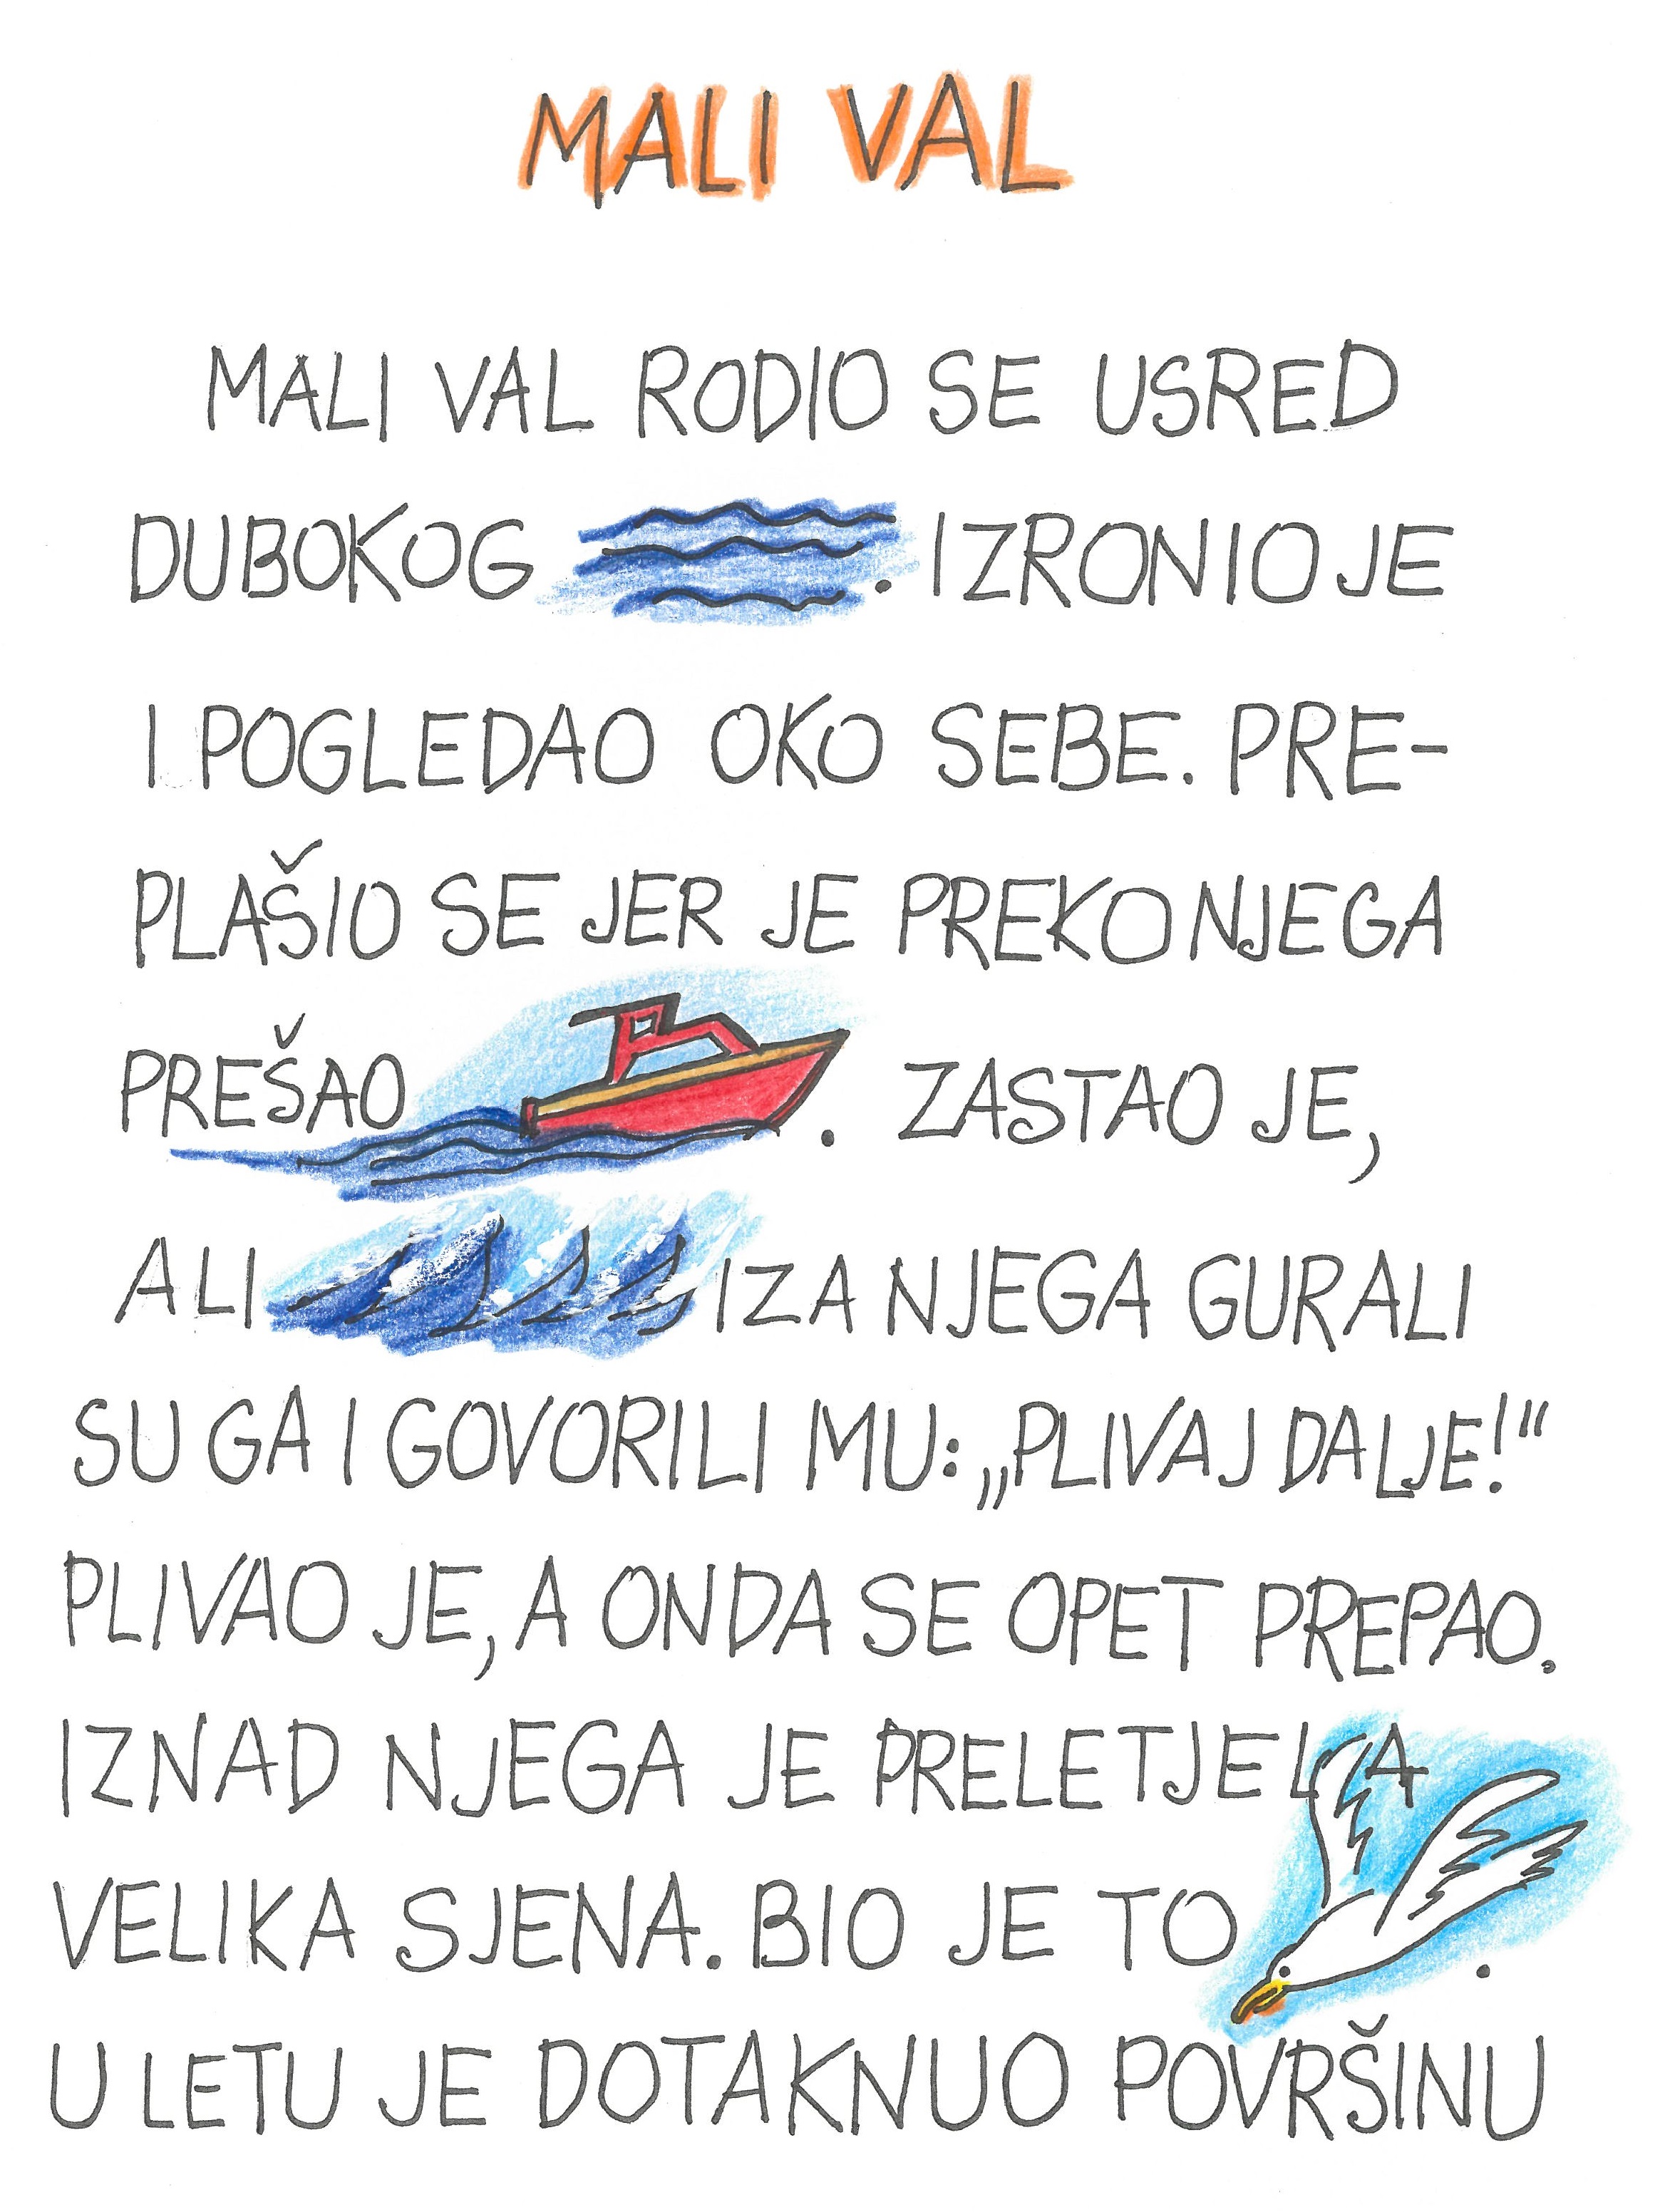 MALI VAL
MALI VAL RODIO SE USRED
DUBOKOG . IZRONIO JE
I POGLEDAO OKO SEBE. PRE-
PLAŠIO SE JER JE PREKO NJEGA
PREŠAO . ZASTAO JE,
ALI IZA NJEGA GURALI
SU GA I GOVORILI MU: „PLIVAJ DALJE!“
PLIVAO JE, A ONDA SE OPET PREPAO.
IZNAD NJEGA JE PRELETJELA
VELIKA SJENA. BIO JE TO .
U LETU JE DOTAKNUO POVRŠINU